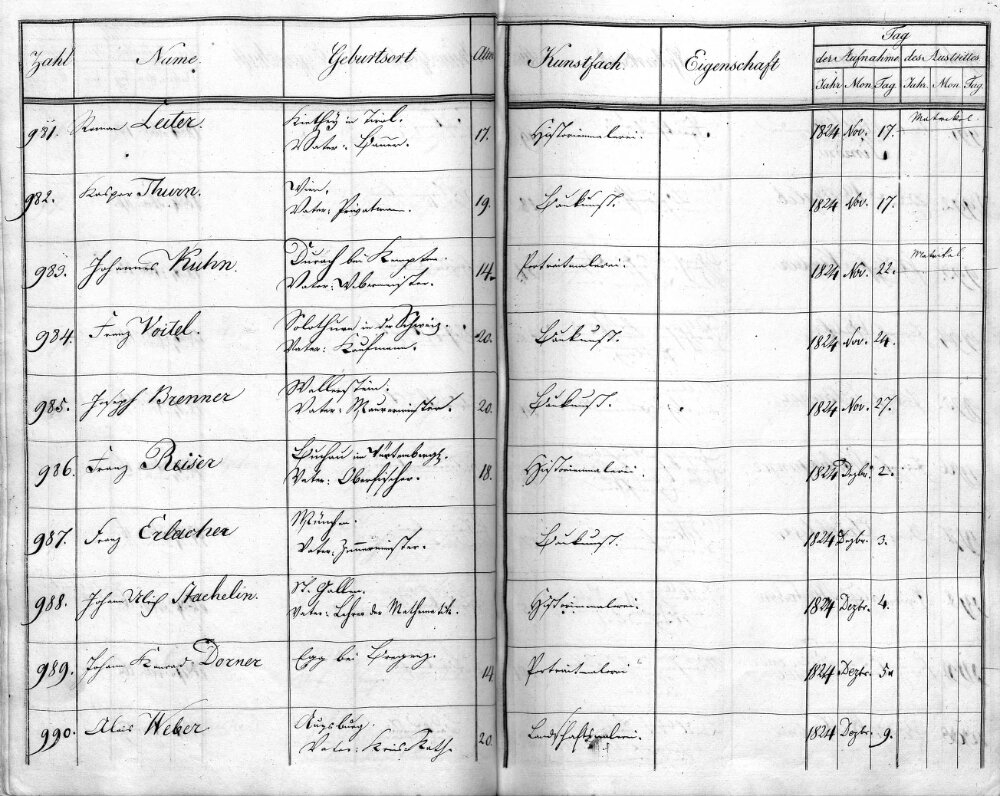 Zahl Name. Geburtsort Alter Kunstfach. Eigenschaft Tag
der Aufnahme des Austrittes
Jahr Mon. Tag. Jahr. Mon. Tag.
981. Roman Leiter. in Tirol. 17. Historienmalerei. 1824 Nov. 17. Matrikel.
Vater: Bauer.
982. Kaspar Thurn. Wien. 19. Baukunst. 1824 Nov. 17.
Vater: Privatmann.
983. Johannes Kuhn. Durach bei Kempten 14. Portraitmalerei. 1824 Nov. 22. Matrikel
Vater: Webermeister.
984. Franz Voitel. Solothurn in der Schweiz. 20. Baukunst. 1824 Nov. 24.
Vater: Kaufmann.
985. Joseph Brenner Wallerstein. 20. Baukunst. 1824 Nov. 27.
Vater: Maurermeister.
986. Franz Reiser Buchau im 18. Historienmalerei. 1824 Dezbr. 2.
Vater: Oberfischer.
987. Franz Erlacher München. Baukunst. 1824 Dezbr. 3.
Vater: Zimmermeister.
988. Johann Ulrich Staehelin. St. Gallen. Historienmalerei. 1824 Dezbr. 4.
Vater: Lehrer der Mathematik.
989. Johann Konrad Dorner Egg bei Bregenz. 14 Portraitmalerei 1824 Dezbr. 5.
990. Alois Weber Augsburg. 20. Landschaftsmalerei. 1824 Dezbr. 9.
Vater: Kreis Rath.